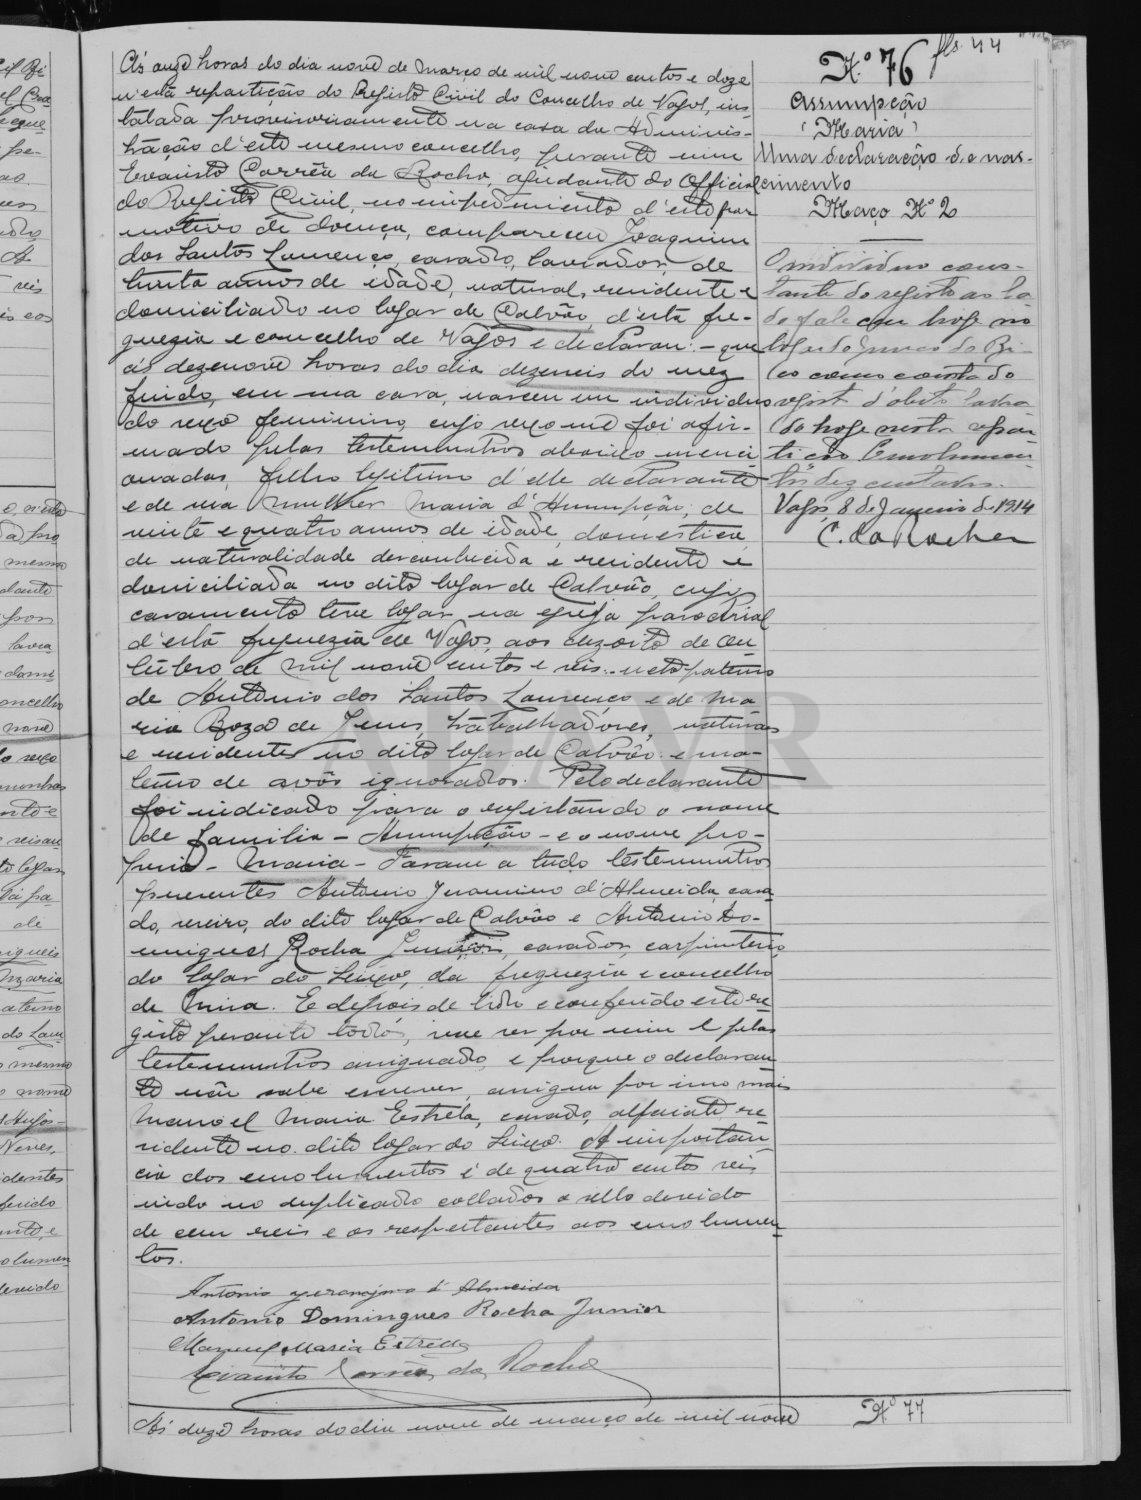 fls. 44
Nº 76
Assumpção
(Maria)
Uma declaração de nas-
cimento
Maço Nº 2
O individuo cons-
tante do registo ao la-
do faleceu hoje no
logar do
co como consta do
regist d'obito lavra-
do hoje nesta repar-
tição Emolumen-
tos dez centavos.
Vagos, 8 de Janeiro de 1914
C. da Rocha
Ás onze horas do dia nove de Março de mil nove centos e doze
n'esta repartição do Registo Civil do Concelho de Vagos, ins-
talada provisoriamente na casa da Adminis-
tração d'este mesmo concelho, perante mim
Evaristo Corrêa da Rocha, ajudante do Official
do Registo Civil, no impedimento d'este por
motivo de doença, compareceu Joaquim
dos Santos Lourenço, casado, lavrador, de
trinta annos de idade, natural, residente e
domiciliado no logar de Calvão, d'esta fre-
guezia e concelho de Vagos e declarou: - que
ás dezenove horas do dia dezeseis do mez
findo, em sua casa, nasceu um individuo
do sexo feminino, cujo sexo me foi afir-
mado pelas testemunhas abaixo menci-
onadas, filho legitimo d'elle declarante
e de sua mulher Maria d'Assumpção, de
vinte e quatro annos de idade, domestica,
de naturalidade desconhecida e residente e
domiciliada no dito logar de Calvão, cujo
casamento teve logar na egreja parochial
d'esta freguezia de Vagos, aos dezoito de Ou-
tubro de mil nove centos e seis. neto paterno
de Antonio dos Santos Lourenço e de Ma-
ria Roza de Jesus, trabalhadores, naturaes
e residentes no dito logar de Calvão e ma-
terno de avós ignorados. Pelo declarante
foi indicado para o registando o nome
de familia - Assumpção - e o nome pro-
prio - Maria - Foram a tudo testemunhas
presentes Antonio Jeronimo d'Almeida, casa-
do, do dito logar de Calvão e Antonio Do-
mingues Rocha Junior, casado, carpinteiro,
do logar do Seixo, da freguezia e concelho
de Mira. E depois de lido e conferido este re-
gisto perante todos, vae ser por mim e pelas
testemunhas assignado, e porque o declaran-
te não sabe escrever, assigna por isso mais
Manoel Maria Estrela, casado, alfaiate re-
sidente no dito logar do Seixo. A importan-
cia dos emolumentos é de quatro centos reis
indo no duplicado collados o sello devido
de cem reis e os respeitantes aos emolumen-
tos.
Antonio Jeronimo d'Almeida
Antonio Domingues Rocha Junior
Manuel Maria Estrella
Evaristo Corrêa da Rocha
Nº 77
Ás doze horas do dia nove de março de mil nove